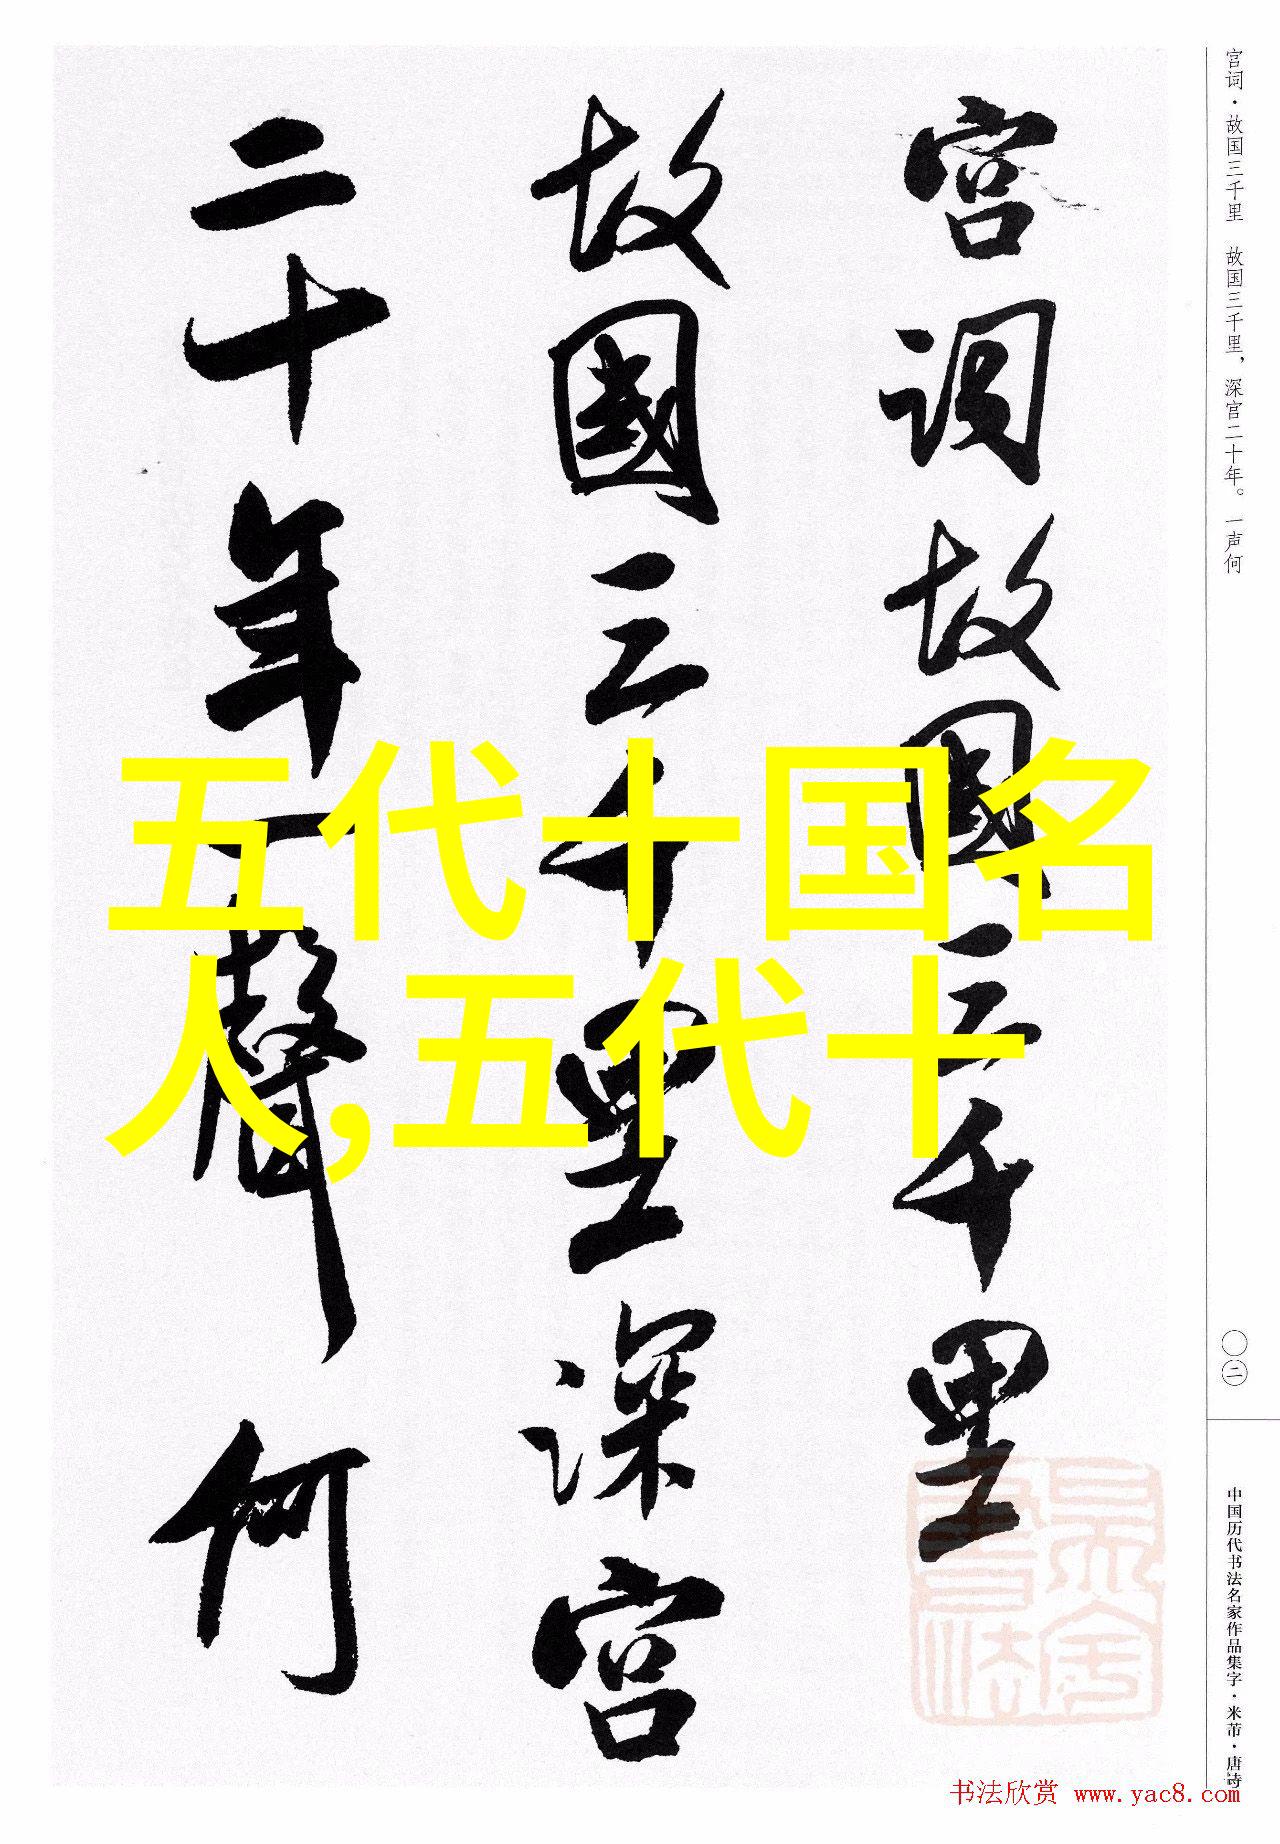 宫词·故国三千里 故国三千里，深宫二十年。一声何
宫词故國三千里
故國三千里深宫
二十年一聲何
五代十国名
人,五代十
〇二
中国历代书法名家作品集字·米芾·唐诗
书法欣赏 www.yac8.com